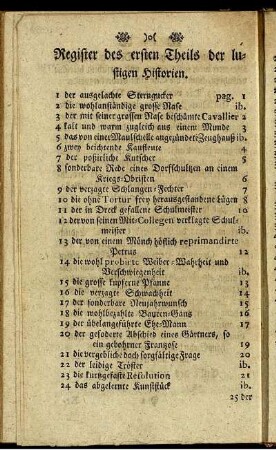 Register des ersten Theils der lu-
stigen Historien.
1 der ausgelachte Sterngucker pag. 1
2 die wohlanständige grosse Nase ib.
3 der mit seiner grossen Nase beschämte Cavallier 2
4 kalt und warm zugleich aus einem Munde 3
5 das von einer Maulschelle angezündete Zeughauß ib.
6 zwey beichtende Kaufleute 4
7 der poßirliche Kutscher 5
8 sonderbare Rede eines Dorfschultzen an einem
Kriegs-Obristen 6
9 der verzagte Schlangen-Fechter 7
10 die ohne Tortur frey herausgestandene Lügen 8
11 der in Dreck gefallene Schulmeister 10
12 der von seinen Mit-Collegen verklagte Schul-
meister ib.
13 der von einem Mönch höflich reprimandirte
Petrus 12
14 die wohl probirte Weiber-Wahrheit und
Verschwiegenheit ib.
15 die grosse kupferne Pfanne 13
16 die verzagte Schwachheit 14
17 der sonderbare Neujahrwunsch 15
18 die wohlbezahlte Bauren-Gans 16
19 der übelangeführte Ehe-Mann 17
20 der gefoderte Abschied eines Gärtners, so
ein gebohrner Franzose 19
21 die vergebliche doch sorgfältige Frage 20
22 der leidige Tröster ib.
23 die kurtzgefaßte Resolution 21
24 das abgelernte Kunststück ib.
25 der